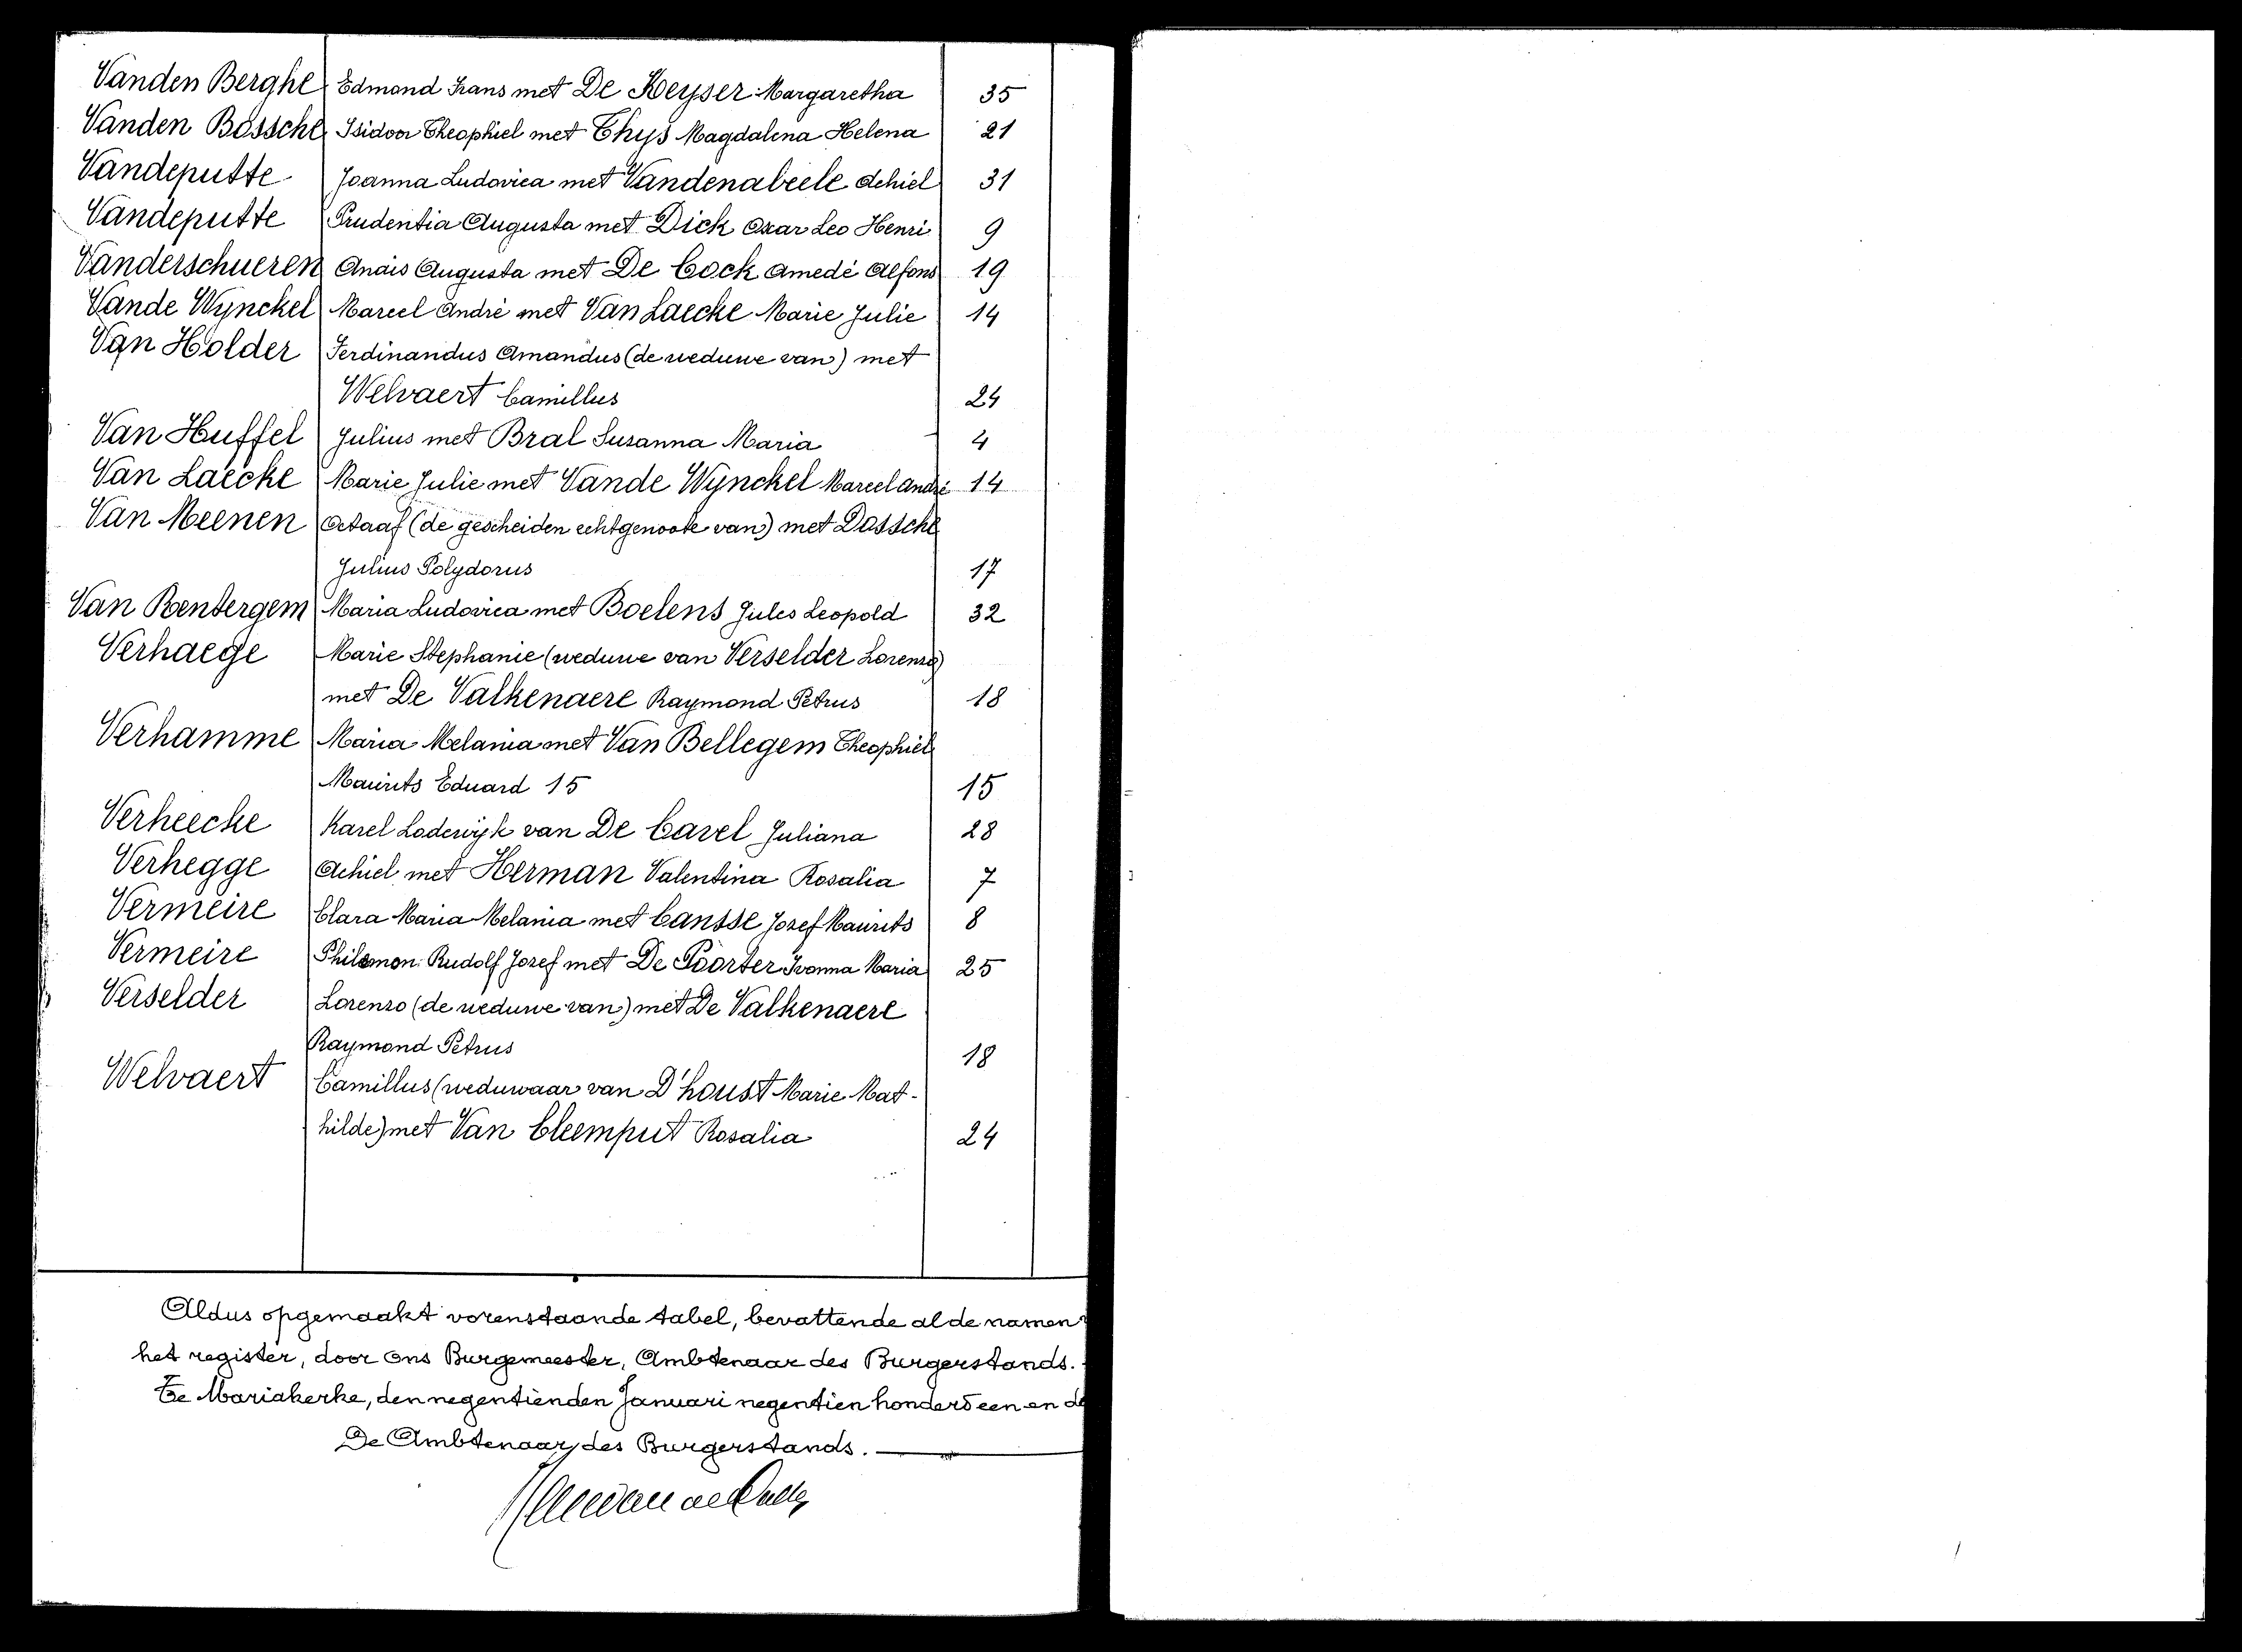 Vanden Berghe Edmond Frans met De Keyser Margaretha 35
Vanden Bossche Isidoor Theophiel met Thys Magdalena Helena 21
Vandeputte Joanna Ludovica met Vandenabeele Achiel 31
Vandeputte Prudentia Augusta met Dick Oscar Leo Henri 9
Vanderschueren Anaïs Augusta met De Cock Amedé Alfons 19
Vande Wynckel Marcel André met Van Laecke Marie Julie 14
Van Holder Ferdinandus Amandus (de weduwe van) met
Welvaert Camillus 24
Van Huffel Julius met Bral Susanna Maria 4
Van Laecke Marie Julie met Vande Wynckel Marcel André 14
Van Meenen Octaaf (de gescheiden echtgenoote van) met Dossche
Julius Polydorus 17
Van Rentergem Maria Ludovica met Boelens Jules Leopold 32
Verhaege Marie Stephanie (weduwe van Verselder Lorenzo)
met De Valkenaere Raymond Petrus 18
Verhamme Maria Melania met Van Bellegem Theophiel
Maurits Eduard 15 15
Verheecke Karel Lodewijk van De Cavel Juliana 28
Verhegge Achiel met Herman Valentina Rosalia 7
Vermeire Clara Maria Melania met Cansse Jozef Maurits 8
Vermeire Philemon Rudolf Jozef met De Poorter Ivonna Maria 25
Verselder Lorenzo (de weduwe van) met De Valkenaere
Raymond Petrus 18
Welvaert Camillus (weduwaar van D'houst Marie Mat-
hilde) met Van Cleemput Rosalia 24
Aldus opgemaakt vorenstaande tabel, bevattende al de namen
het register, door Ons Burgemeester, Ambtenaar des Burgerstands.
Te Mariakerke, den negentienden Januari negentien honderd een en
De Ambtenaar des Burgerstands.